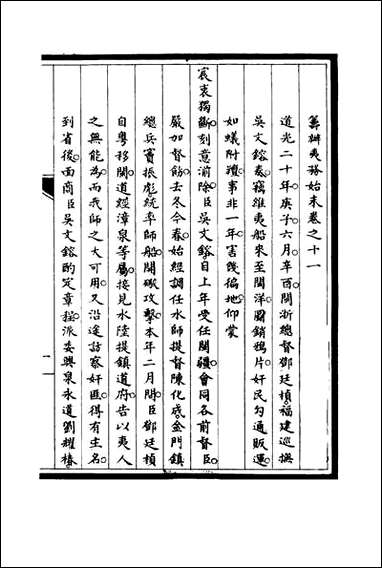 籌辦夷務始末卷之十一
道光二十年庚子六月辛酉閩浙總督鄧廷楨福建巡撫
吳文鎔奏竊維夷船來至閩洋圖銷鴉片奸民勾通販運
如蟻附羶事非一年害踐徧地仰蒙
宸衷獨斷刻意湔除臣吳文鎔自上年受任閩疆會同各前督臣
嚴加督飭去冬今春始經調任水師提督陳化成金門鎮
總兵竇振彪統率師船開礮攻擊本年二月間臣鄧廷楨
自粵移閩道經漳泉等屬接見水陸提鎮道府告以夷人
之無能為而我師之大可用又沿途訪察奸匪得有主名
到省後面商臣吳文鎔酌定章程派委興泉永道劉耀椿
一